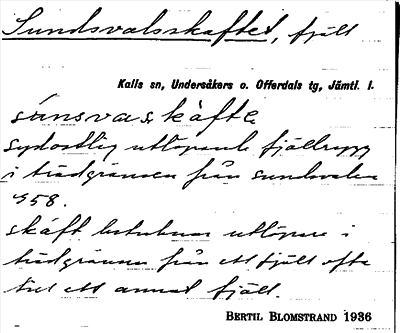 Sundsvalsskaftet, fjäll
Kalls sn, Undersåkers o. Offerdals tg, Jämtl. l.
sùnsvaskàfte
sydostlig utlöpande fjällrygg
i trädgränsen från sundsvalen
458.
skáft betecknar utlöpare i
trädgränsen från ett fjäll ofta
till ett annat fjäll.
BERTIL BLOMSTRAND 1936